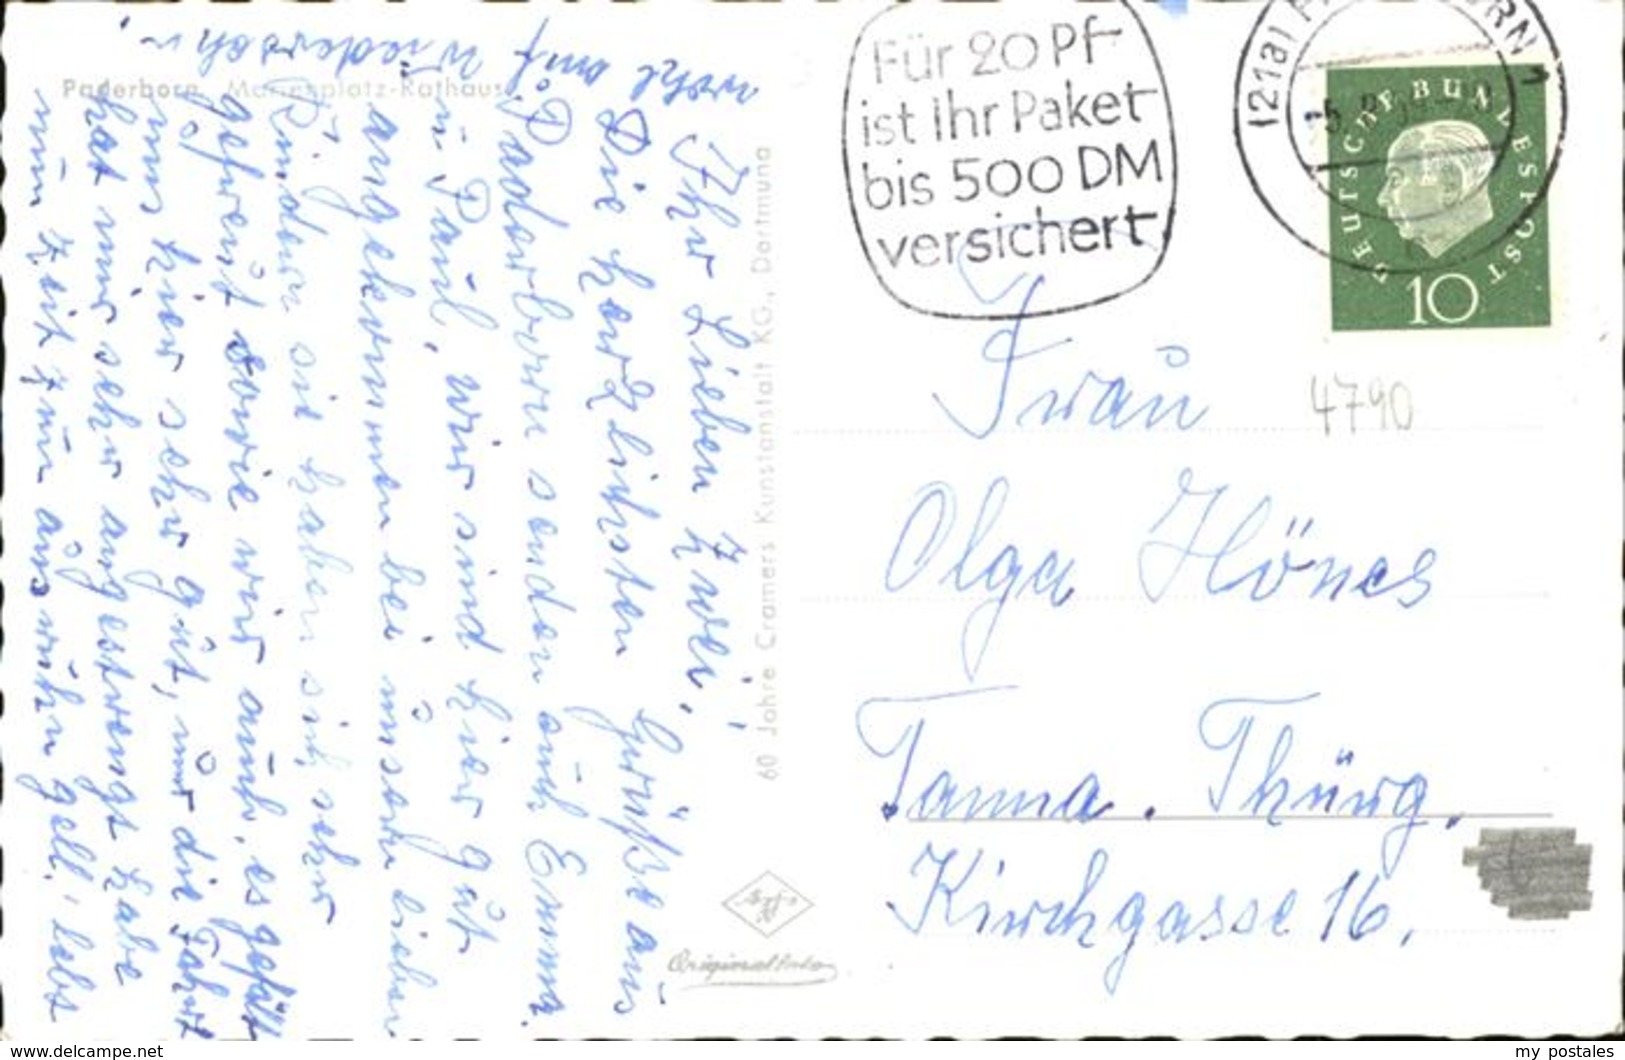 Paderborn, Marienplatz-Rathaus
Ihr Lieben Zwei!
Die herzlichsten Grüße aus
Paderborn senden auch Emma
u. Paul, wir sind hier gut
angekommen bei unsern lieben
Kindern sie haben sich sehr
gefreut sowie wir auch, es gefällt
uns hier sehr gut, nur die Fahrt
hat mir sehr angestrengt habe
nun Zeit zum ausruhn gell! lebt
wohl auf Wiedersehn
60 Jahre Cramers Kunstanstalt KG., Dortmund
Agfa
Original Foto
Für 20 Pf
ist Ihr Paket
bis 500 DM
versichert
(21a) PADERBORN 1
DEUTSCHE BUNDESPOST
10
4790
Frau
Olga Hönes
Tanna. Thürg.
Kirchgasse 16.
www.delcampe.net
my_postales